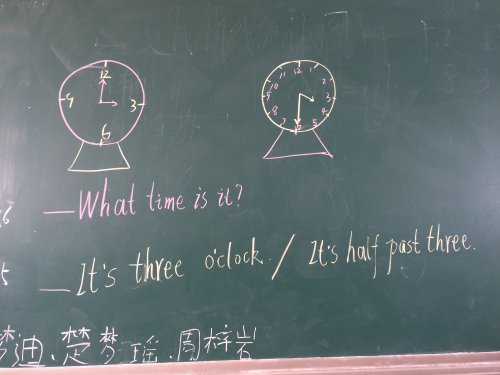 12
9 3
6
12 1 2 3 4 5 6 7 8 9 10 11
—What time is it?
—It's three o'clock. / It's half past three.
迪.楚梦瑶.周梓岩